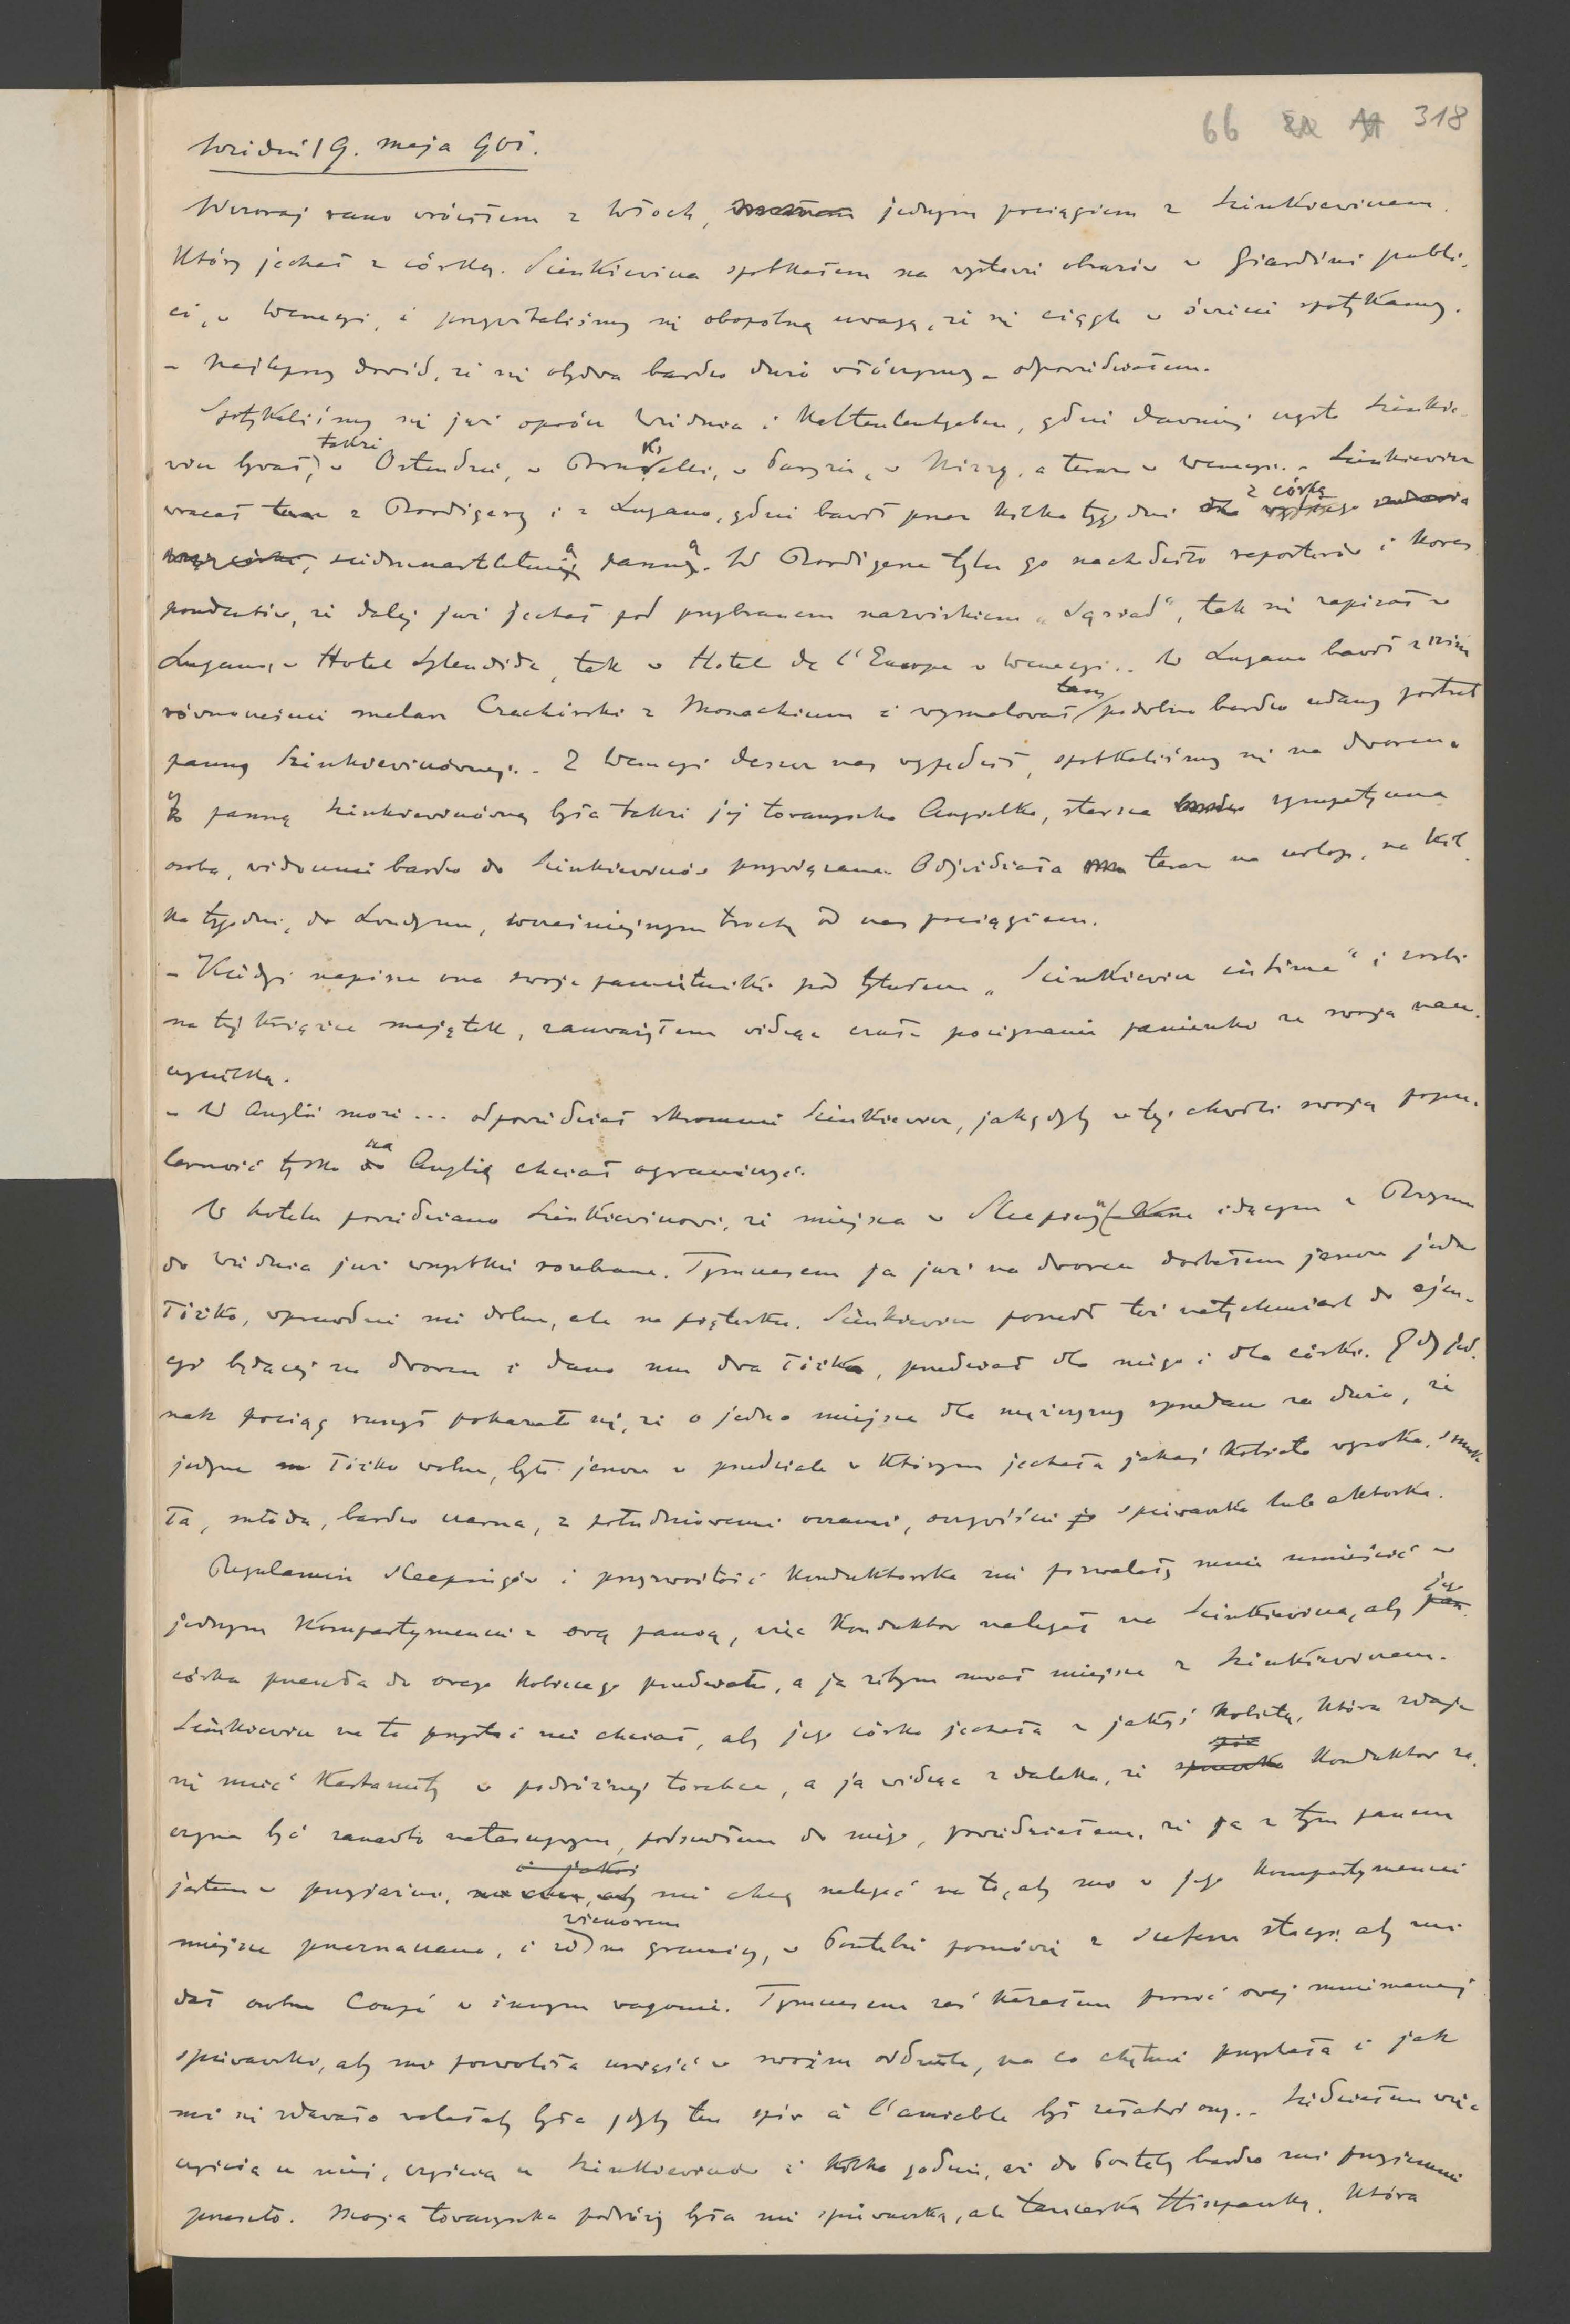 66 318
Wiedeń 19. maja 901.
Wczoraj rano wróciłem z Włoch, jednym pociągiem z Sienkiewiczem,
który jechał z córką. Sienkiewicza spotkałem na wystawie obrazów w Giardini publi-
ci, w Wenecyi, i przywitaliśmy się obopólną uwagą, że się ciągle w świecie spotykamy.
– Najlepszy dowód, że się obydwa bardzo dużo włóczymy – odpowiedziałem.
Spotykaliśmy się już oprócz Wiednia i Kaltenleutgeben, gdzie dawniej często Sienkie-
wicz bywał, także w Ostendzie, w Brukseli, w Paryżu, w Nizzy, a teraz w Wenecyi. – Sienkiewicz
wracał teraz z Bordigery i z Lugano, gdzie bawił przez kilka tygodni z córką
siedmnastoletnią panną. W Bordigera tylu go nachodziło reporterów i kores-
pondentów, że dalej już jechał pod przybranem nazwiskiem „Sąsiad“, tak się zapisał w
Lugano, w Hotel Splendide, tak w Hotel de l'Europe w Wenecyi. . W Lugano bawił z nim
równocześnie malarz Czachórski z Monachium i wymalował tam podobno bardzo udany portret
panny Sienkiewiczównej. – Z Wenecyi deszcz nas wypędził, spotkaliśmy się na dworcu.
Z panną Sienkiewiczówną była także jej towarzyszka Angielka, starsza sympatyczna
osoba, widocznie bardzo do Sienkiewiczów przywiązana. Odjeżdżała teraz na urlop, na kil-
ka tygodni, do Londynu, wcześniejszym trochę od nas pociągiem.
– Kiedyś napisze ona swoje pamiętniki pod tytułem „Sienkiewicz intime“ i zrobi
na tej książce majątek, zauważyłem widząc czułe pożegnanie panienki ze swoją nau-
czycielką.
– W Anglii może... odpowiedział skromnie Sienkiewicz, jak gdyby w tej chwili swoją popu-
larność tylko na Anglię chciał ograniczyć.
W hotelu powiedziano Sienkiewiczowi, że miejsca w Sleeping idącym z Rzymu
do Wiednia już wszystkie rozebrane. Tymczasem ja już na dworcu dostałem jeszcze jedno
łóżko, wprawdzie nie dolne, ale na pięterku. Sienkiewicz poszedł też natychmiast do ajen-
cyi będącej na dworcu i dano mu dwa łóżka, przedział dla niego i dla córki. Gdy jed-
nak pociąg ruszył pokazało się, że o jedno miejsce dla mężczyzny sprzedano za dużo, że
jedyne łóżko wolne, było jeszcze w przedziale w którym jechała jakaś kobieta wysoka, smuk-
ła, młoda, bardzo czarna, z południowemi oczami, oczywiście śpiewaczka lub aktorka.
Regulamin Sleepingów i przyzwoitość konduktorska nie pozwalały mnie umieścić w
jednym kompartymencie z ową panną, więc konduktor nalegał na Sienkiewicza, aby jego
córka przeszła do owego kobiecego przedziału, a ja żebym zajął miejsce z Sienkiewiczem.
Sienkiewicz na to przystać nie chciał, aby jego córka jechała z jakąś kobietą, która zdaje
się mieć kastaniety w podróżnej torebce, a ja widząc z daleka, że konduktor za-
czyna być zanadto natarczywym, podszedłem do niego, powiedziałem, że ja z tym panem
jestem w przyjaźni, nie chcę nalegać na to, aby mi w jego kompartymencie
miejsce przeznaczano, i że wieczorem na granicy, w Pontebie pomówię z szefem stacyi aby mi
dał osobne Coupé w innym wagonie. Tymczasem zaś kazałem prosić owej mniemanej
śpiewaczki, aby mi pozwoliła usiąść w swoim oddziale, na co chętnie przystała i jak
mi się zdawało wolałaby była gdyby ten spór à l'amiable był załatwiony. – Siedziałem więc
częścią u niej, częścią u Sienkiewiczów i kilka godzin, aż do Ponteby bardzo mi przyjemnie
przeszło. Moja towarzyszka podróży była nie śpiewaczką, ale tancerką Hiszpanką, która